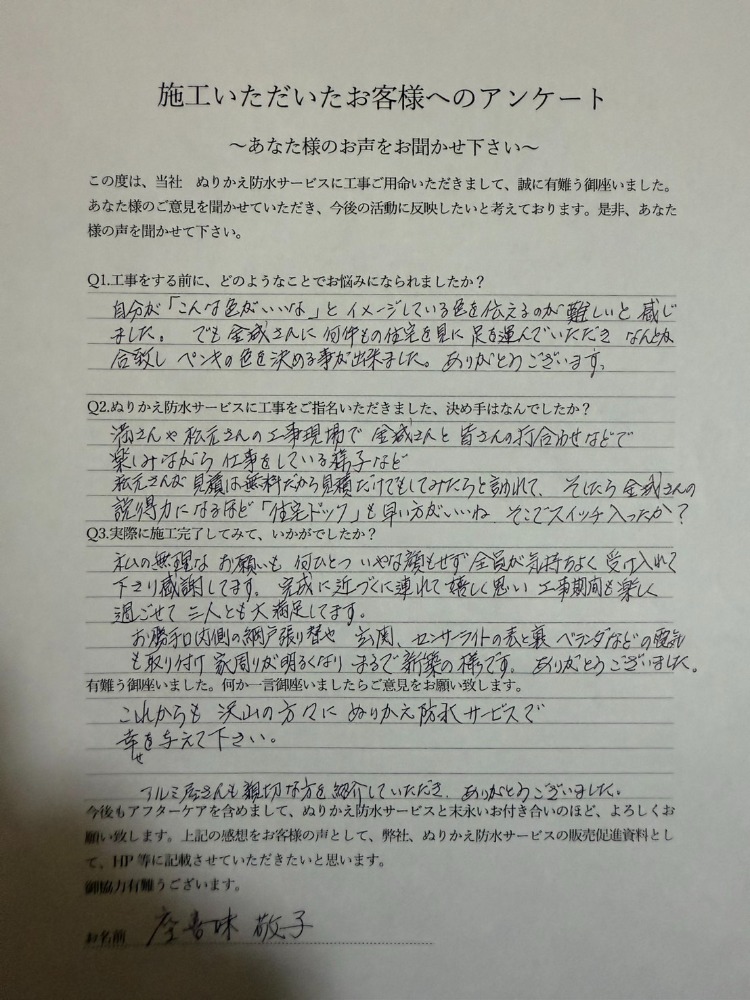 施工いただいたお客様へのアンケート
～あなた様のお声をお聞かせ下さい～
この度は、当社　ぬりかえ防水サービスに工事ご用命いただきまして、誠に有難う御座いました。
あなた様のご意見を聞かせていただき、今後の活動に反映したいと考えております。是非、あなた
様の声を聞かせて下さい。
Q1.工事をする前に、どのようなことでお悩みになられましたか？
自分が「こんな色がいいな」と イメージしている色を伝えるのが 難しいと 感じ
ました。 でも 金城さんに 何件もの住宅を見に 足を運んでいただき なんとか
合致し ペンキの色を決める事が出来ました。ありがとうございます。
Q2.ぬりかえ防水サービスに工事をご指名いただきました、決め手はなんでしたか？
さんや 松元さんの工事現場で 金城さんと 皆さんの打合わせなどで
楽しみながら 仕事をしている様子など
松元さんが 見積は無料だから見積だけでもしてみたらと言われて、 そしたら 金城さんの
説得力になるほど「住宅ドック」も 早い方がいいね そこでスイッチ入ったか？
Q3.実際に施工完了してみて、いかがでしたか？
私の無理な お願いも 何ひとつ いやな顔もせず 全員が気持ちよく 受け入れて
下さり感謝してます。 完成に近づくに連れて 嬉しく思い 工事期間も楽しく
過ごせて 二人とも大満足してます。
お勝手口内側の網戸張り替や 玄関、センサーライトの表と裏 ベランダなどの電気
も取り付け 家周りが明るくなり まるで新築の様です。 ありがとうございました。
有難う御座いました。何か一言御座いましたらご意見をお願い致します。
これからも 沢山の方々に ぬりかえ防水サービスで
幸せを与えて下さい。
アルミ屋さんも親切な方を紹介していただき ありがとうございました。
今後もアフターケアを含めまして、ぬりかえ防水サービスと末永いお付き合いのほど、よろしくお
願い致します。上記の感想をお客様の声として、弊社、ぬりかえ防水サービスの販売促進資料とし
て、HP 等に記載させていただきたいと思います。
御協力有難うございます。
お名前 座喜味 敬子